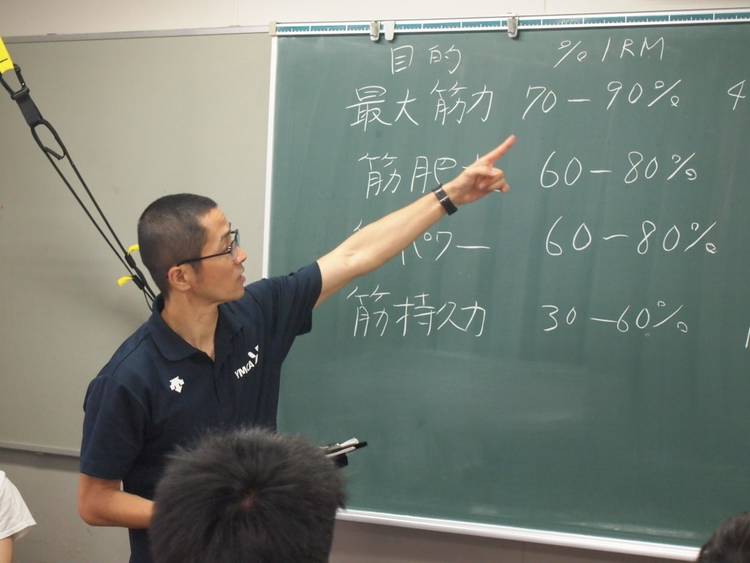 目的 % 1RM
最大筋力 70-90% 4
筋肥 60-80%
パワー 60-80%
筋持久力 30-60%
YMCA